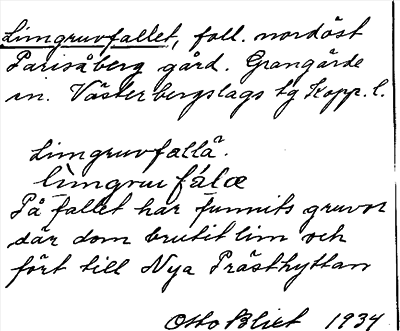 Limgruvfallet, foll. nordöst
Parisåberg gård. Grangärde
sn. Västerbergslags tg Kopp. l.
Limgruvfallä.
lìmgruvfálœ
På fallet har funnits gruvor
där dom brutit lim och
fört till Nya Prästhyttan
Otto Blixt 1934